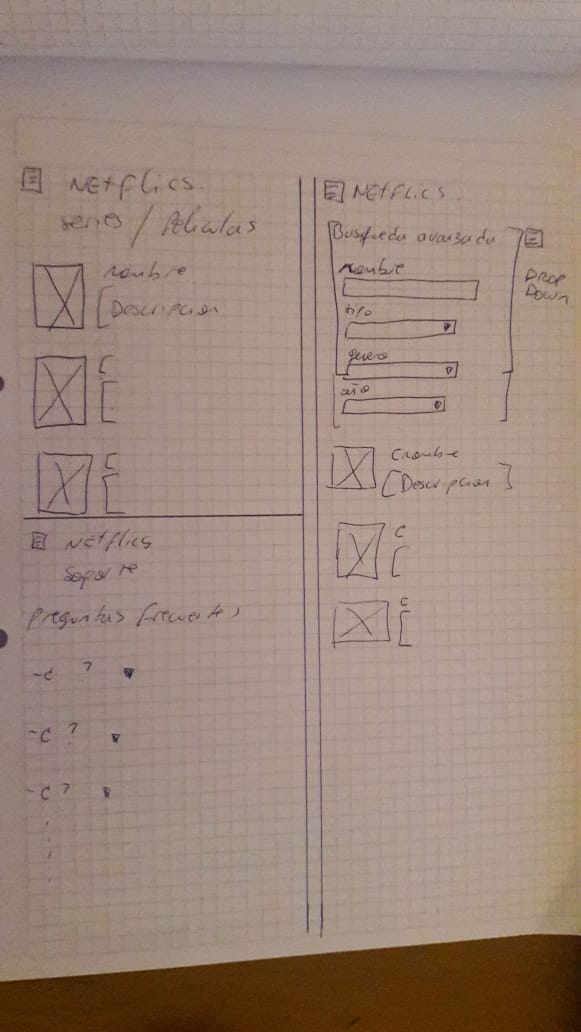 NETFLICS
series / Peliculas
nombre
[Descripcion
C
[
C
[
NETFLICS
Soporte
Preguntas frecuentes
-C ?
-C ?
-C ?
NETFLICS
Busqueda avanzada
nombre
tipo
genero
año
DROP
DOWN
nombre
[Descripcion]
C
[
C
[